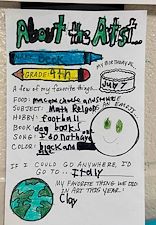 About the Artist...
GRADE: 4th
MY BIRTHDAY IS
JULY 7
A few of my favorite things...
FOOD:
SUBJECT: Math Religion
HOBBY: Football
BOOK: dog books
SONG: I Do Not have
COLOR: black and
IF I COULD GO ANYWHERE, I'D
GO TO... Italy
MY FAVORITE THING WE DID
IN ART THIS YEAR:
Clay